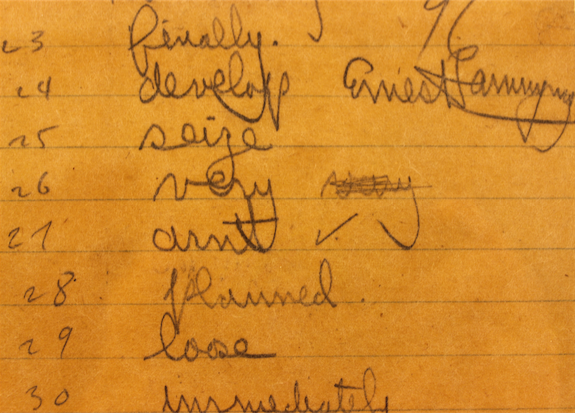 23 finally.
24 develop Ernest Hemingway
25 seize
26 very
27 arnt ✓
28 planned.
29 loose
30 immediately